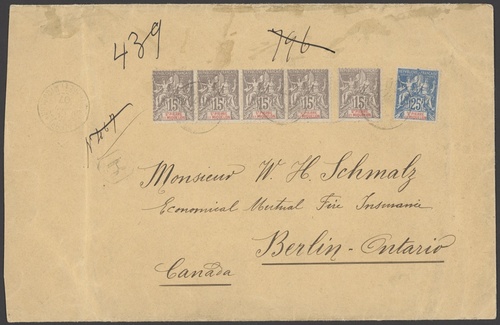 439
796
15 15 15 15 15 25
Nº 467
Monsieur W. H. Schmalz
Economical Mutual Fire Insurance
Berlin-Ontario
Canada